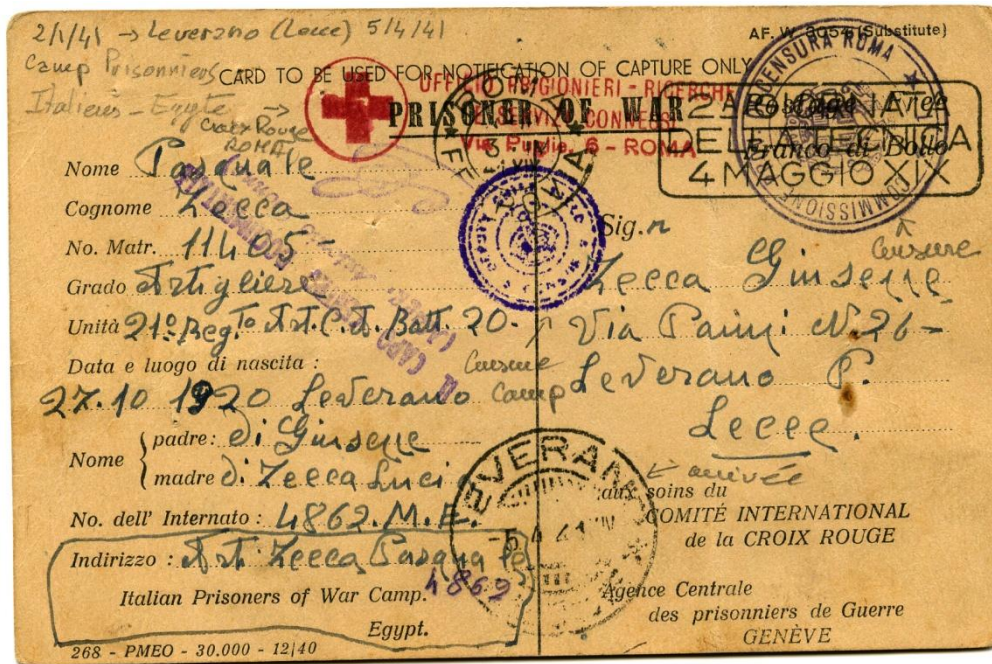 2/1/41 → Leverano (Lecce) 5/4/41
AF. W. 3054 (Substitute)
Camp Prisonniers
Italiens - Egypte →
Croix Rouge
ROMA
CARD TO BE USED FOR NOTIFICATION OF CAPTURE ONLY
UFFICIO PRIGIONIERI - RICERCHE
E SERVIZI CONNESSI
Via Puglie, 6 - ROMA
PRISONER OF WAR
Postage Free
Franco di Bollo
DELLA TECNICA
4 MAGGIO XIX
CENSURA ROMA
COMMISSIONE
Censure
Nome Pasquale
Cognome Zecca
No. Matr. 11405
Grado Artigliere
Unità 21º Regto Art. C.A. Batt. 20-
Data e luogo di nascita :
27.10 1920 Leverano
Nome
padre: di Giuseppe
madre di Zecca Lucia
No. dell' Internato : 4862. M.E.
Indirizzo : Art. Zecca Pasquale
4862
Italian Prisoners of War Camp.
Egypt.
268 - PMEO - 30.000 - 12/40
IL CAPO
Censure
Camp
Sig.r
Zecca Giuseppe
Via N. 26-
Leverano P.
Lecce.
← arrivée
LEVERANO
-5.4.41
aux soins du
COMITÉ INTERNATIONAL
de la CROIX ROUGE
Agence Centrale
des prisonniers de Guerre
GENÈVE